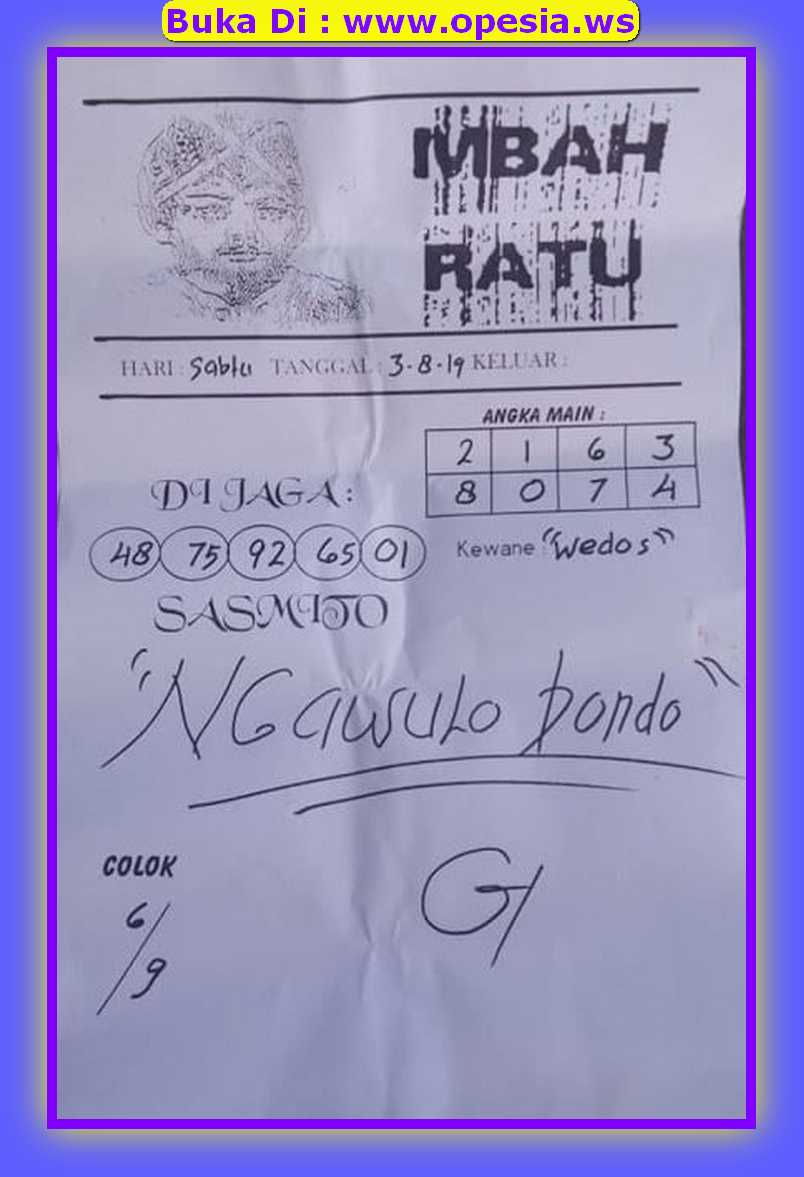 Buka Di : www.opesia.ws
MBAH
RATU
HARI : Sabtu TANGGAL : 3-8-19 KELUAR :
ANGKA MAIN :
2 1 6 3
8 0 7 4
DI JAGA :
48 75 92 65 01
Kewane : "Wedos"
SASMITO
"NGawulo bondo"
COLOK
6/9
G/